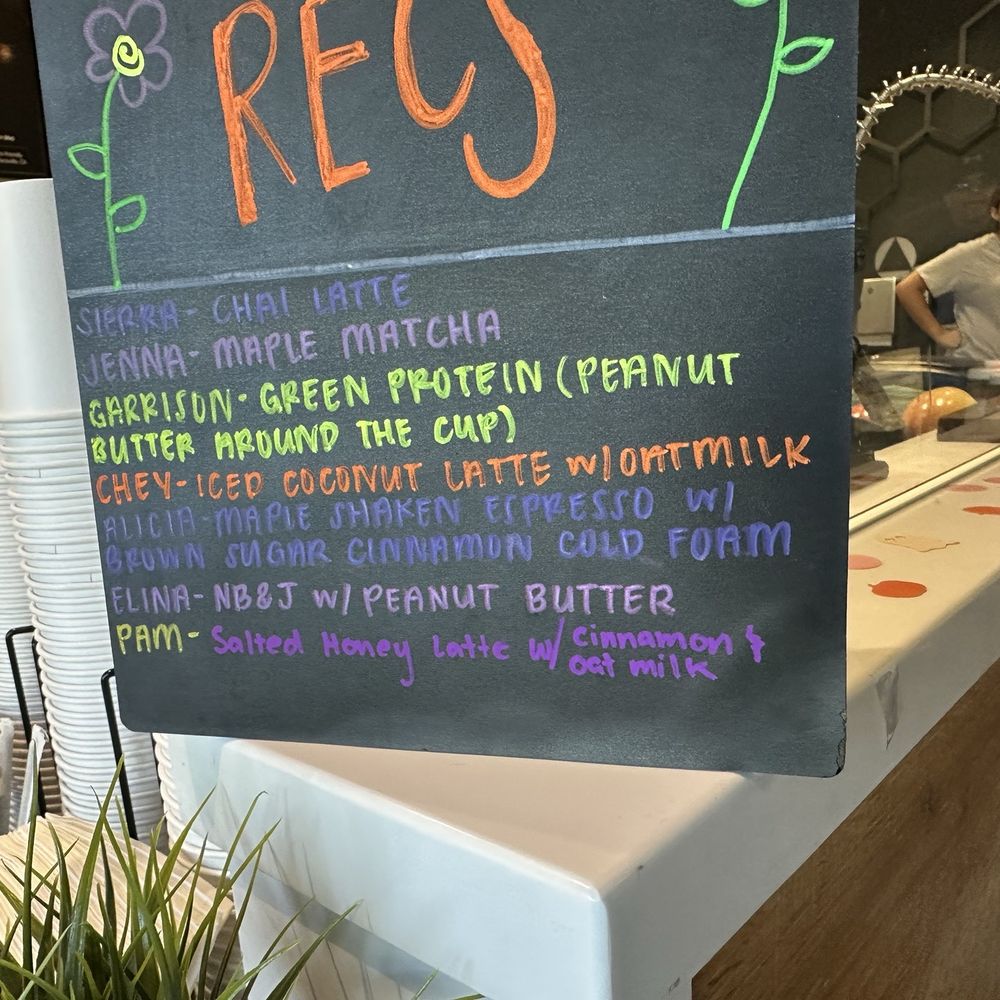 RECS
SIERRA- CHAI LATTE
JENNA- MAPLE MATCHA
GARRISON- GREEN PROTEIN (PEANUT
BUTTER AROUND THE CUP)
CHEY- ICED COCONUT LATTE W/OATMILK
ALICIA- MAPLE SHAKEN ESPRESSO W/
BROWN SUGAR CINNAMON COLD FOAM
ELINA- NB&J W/ PEANUT BUTTER
PAM- Salted Honey Latte w/ cinnamon &
oat milk